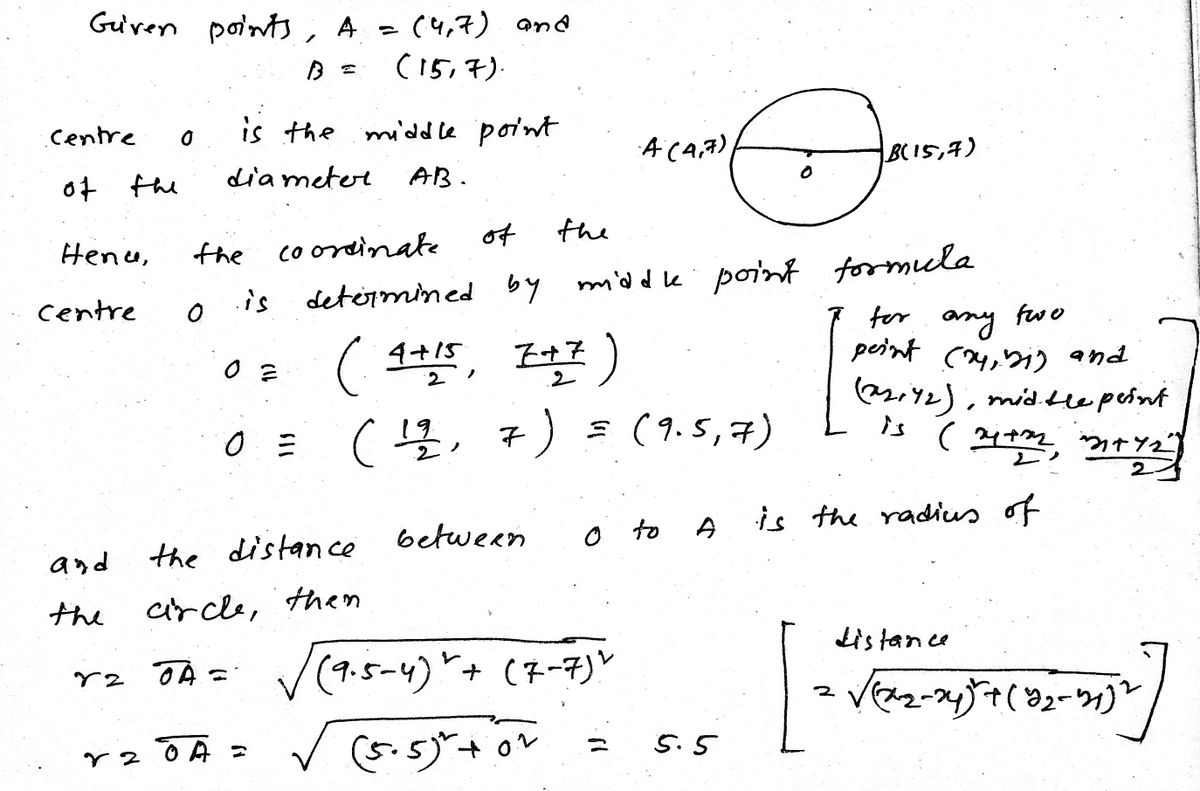 Given points, A = (4,7) and
B = (15,7).
centre O is the middle point
of the diameter AB.
A(4,7)
B(15,7)
O
Hence, the coordinate of the
centre O is determined by middle point formula
O ≡ ( (4+15)/2, (7+7)/2 )
O ≡ ( 19/2, 7 ) ≡ (9.5,7)
[ for any two
point (x1,y1) and
(x2,y2), middle point
is ( (x1+x2)/2, (y1+y2)/2 ) ]
and the distance between O to A is the radius of
the circle, then
r = OA = √((9.5-4)² + (7-7)²)
r = OA = √((5.5)² + 0²) = 5.5
[ distance
= √((x2-x1)²+(y2-y1)²) ]